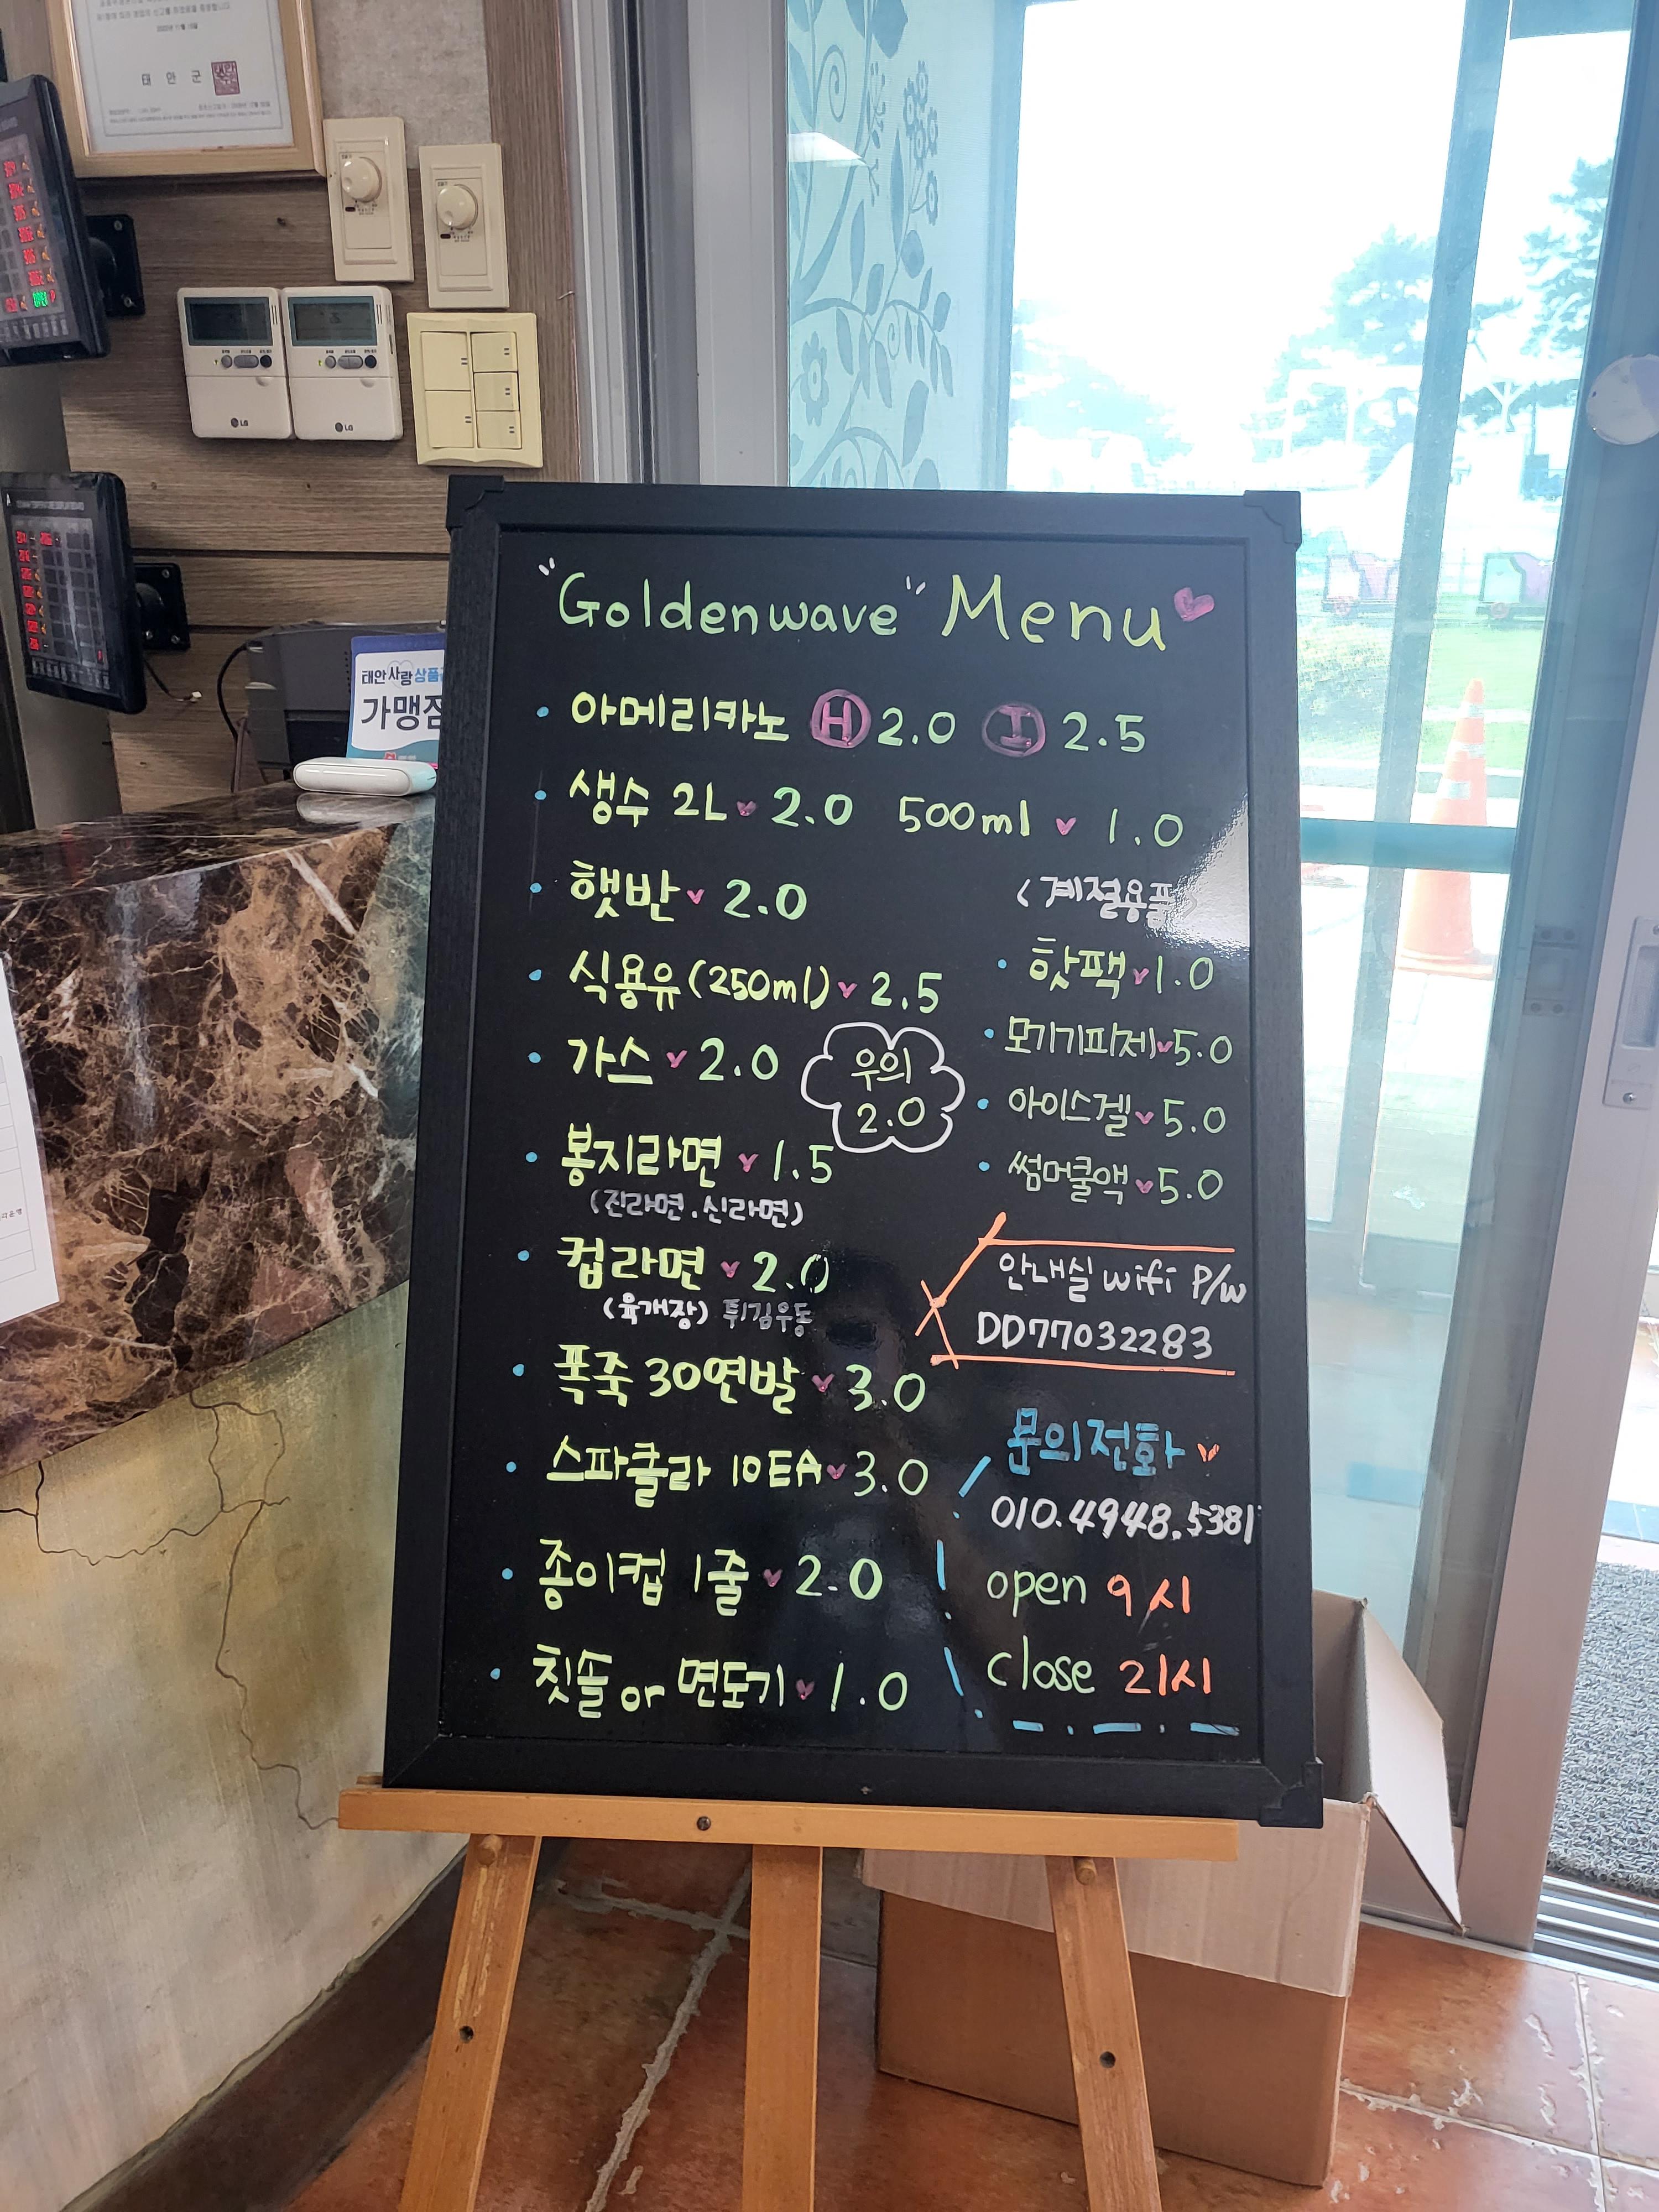 태안군
LG
LG
태안사랑상품
가맹점
"Goldenwave" Menu
아메리카노 H 2.0 I 2.5
생수 2L 2.0 500ml 1.0
햇반 2.0
식용유(250ml) 2.5
가스 2.0
우의
2.0
봉지라면 1.5
(진라면.신라면)
컵라면 2.0
(육개장) 튀김우동
폭죽 30연발 3.0
스파클라 10EA 3.0
종이컵 1줄 2.0
칫솔 or 면도기 1.0
<계절용품>
핫팩 1.0
모기기피제 5.0
아이스겔 5.0
썸머쿨액 5.0
안내실 wifi P/w
DD77032283
문의전화
010.4948.5381
open 9시
close 21시